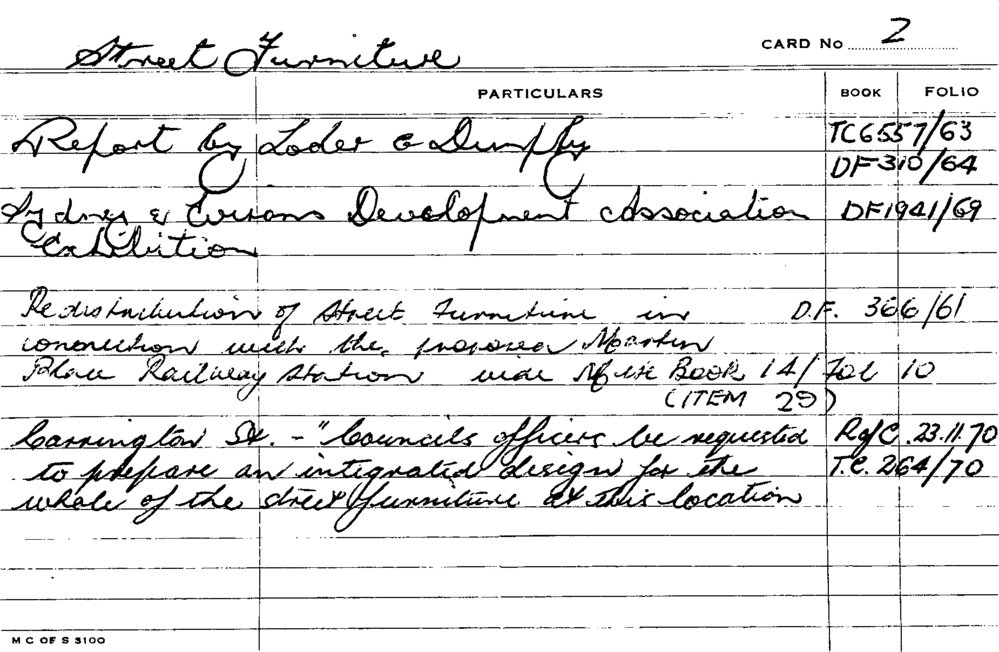 Street Furniture CARD No 2
PARTICULARS BOOK FOLIO
Report by Loder & Dunphy TC6557/63
DF310/64
Sydney & Evirons Development Association DF1941/69
Exhibition
Redistribution of Street Furniture in D.F. 366/61
connection with the proposed Martin
Place Railway Station vide Book 14/Fol 10
(ITEM 29)
Carrington St. - "Councils officers be requested R of C 23.11.70
to prepare an integrated design for the T.C. 264/70
whole of the street furniture at this location
M C OF S 3100